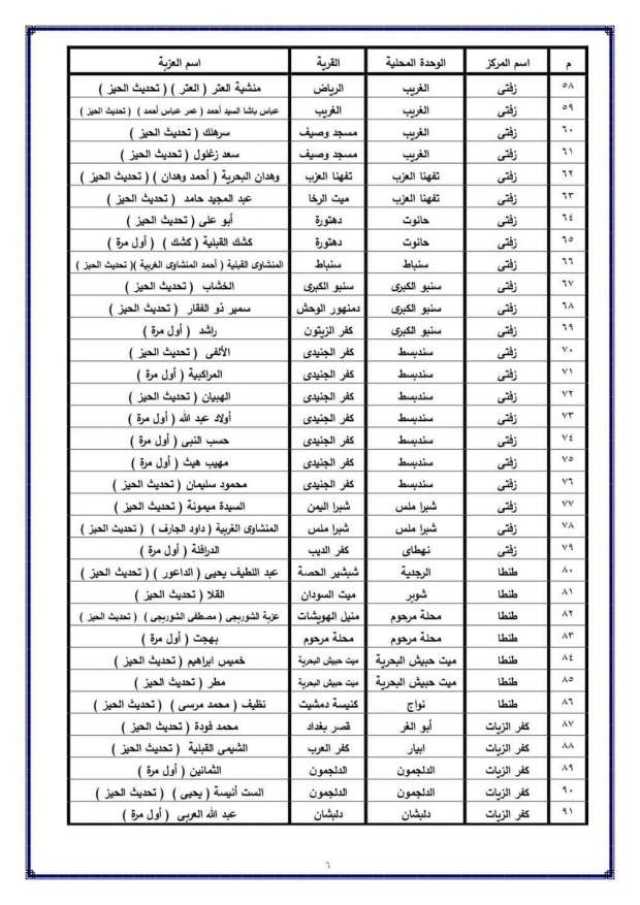 م اسم المركز الوحدة المحلية القرية اسم العزبة
٥٨ زفتى الغريب الرياض منشية العتر ( العتر ) ( تحديث الحيز )
٥٩ زفتى الغريب الغريب عباس باشا السيد أحمد ( عمر عباس أحمد ) ( تحديث الحيز )
٦٠ زفتى الغريب مسجد وصيف سرهنك ( تحديث الحيز )
٦١ زفتى الغريب مسجد وصيف سعد زغلول ( تحديث الحيز )
٦٢ زفتى تفهنا العزب تفهنا العزب وهدان البحرية ( أحمد وهدان ) ( تحديث الحيز )
٦٣ زفتى تفهنا العزب ميت الرخا عبد المجيد حامد ( تحديث الحيز )
٦٤ زفتى حانوت دهتورة أبو على ( تحديث الحيز )
٦٥ زفتى حانوت دهتورة كشك القبلية ( كشك ) ( أول مرة )
٦٦ زفتى سنباط سنباط المنشاوى القبلية ( أحمد المنشاوى الغربية )( تحديث الحيز )
٦٧ زفتى سنبو الكبرى سنبو الكبرى الخشاب ( تحديث الحيز )
٦٨ زفتى سنبو الكبرى دمنهور الوحش سمير ذو الفقار ( تحديث الحيز )
٦٩ زفتى سنبو الكبرى كفر الزيتون راشد ( أول مرة )
٧٠ زفتى سندبسط كفر الجنيدى الألفى ( تحديث الحيز )
٧١ زفتى سندبسط كفر الجنيدى المراكبية ( أول مرة )
٧٢ زفتى سندبسط كفر الجنيدى الهبيان ( تحديث الحيز )
٧٣ زفتى سندبسط كفر الجنيدى أولاد عبد الله ( أول مرة )
٧٤ زفتى سندبسط كفر الجنيدى حسب النبى ( أول مرة )
٧٥ زفتى سندبسط كفر الجنيدى مهيب هيث ( أول مرة )
٧٦ زفتى سندبسط كفر الجنيدى محمود سليمان ( تحديث الحيز )
٧٧ زفتى شبرا ملس شبرا اليمن السيدة ميمونة ( تحديث الحيز )
٧٨ زفتى شبرا ملس شبرا ملس المنشاوى الغربية ( داود الجارف ) ( تحديث الحيز )
٧٩ زفتى نهطاى كفر الديب الدرافلة ( أول مرة )
٨٠ طنطا الرجدية شبشير الحصة عبد اللطيف يحيى ( الداعور ) ( تحديث الحيز )
٨١ طنطا شوبر ميت السودان القلا ( تحديث الحيز )
٨٢ طنطا محلة مرحوم منيل الهويشات عزبة الشوربجى ( مصطفى الشوربجى ) ( تحديث الحيز )
٨٣ طنطا محلة مرحوم محلة مرحوم بهجت ( أول مرة )
٨٤ طنطا ميت حبيش البحرية ميت حبيش البحرية خميس ابراهيم ( تحديث الحيز )
٨٥ طنطا ميت حبيش البحرية ميت حبيش البحرية مطر ( تحديث الحيز )
٨٦ طنطا نواج كنيسة دمشيت نظيف ( محمد مرسى ) ( تحديث الحيز )
٨٧ كفر الزيات أبو الغر قصر بغداد محمد فودة ( تحديث الحيز )
٨٨ كفر الزيات ابيار كفر العرب الشيمى القبلية ( تحديث الحيز )
٨٩ كفر الزيات الدلجمون الدلجمون الثمانين ( أول مرة )
٩٠ كفر الزيات الدلجمون الدلجمون الست أنيسة ( يحيى ) ( تحديث الحيز )
٩١ كفر الزيات دلبشان دلبشان عبد الله العربى ( أول مرة )
٦